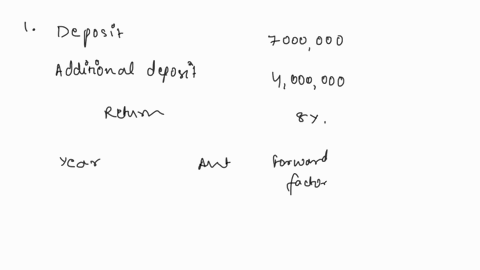 1. Deposit 7000,000
Additional deposit 4,000,000
Return 8%.
Year Amt Forward
factor